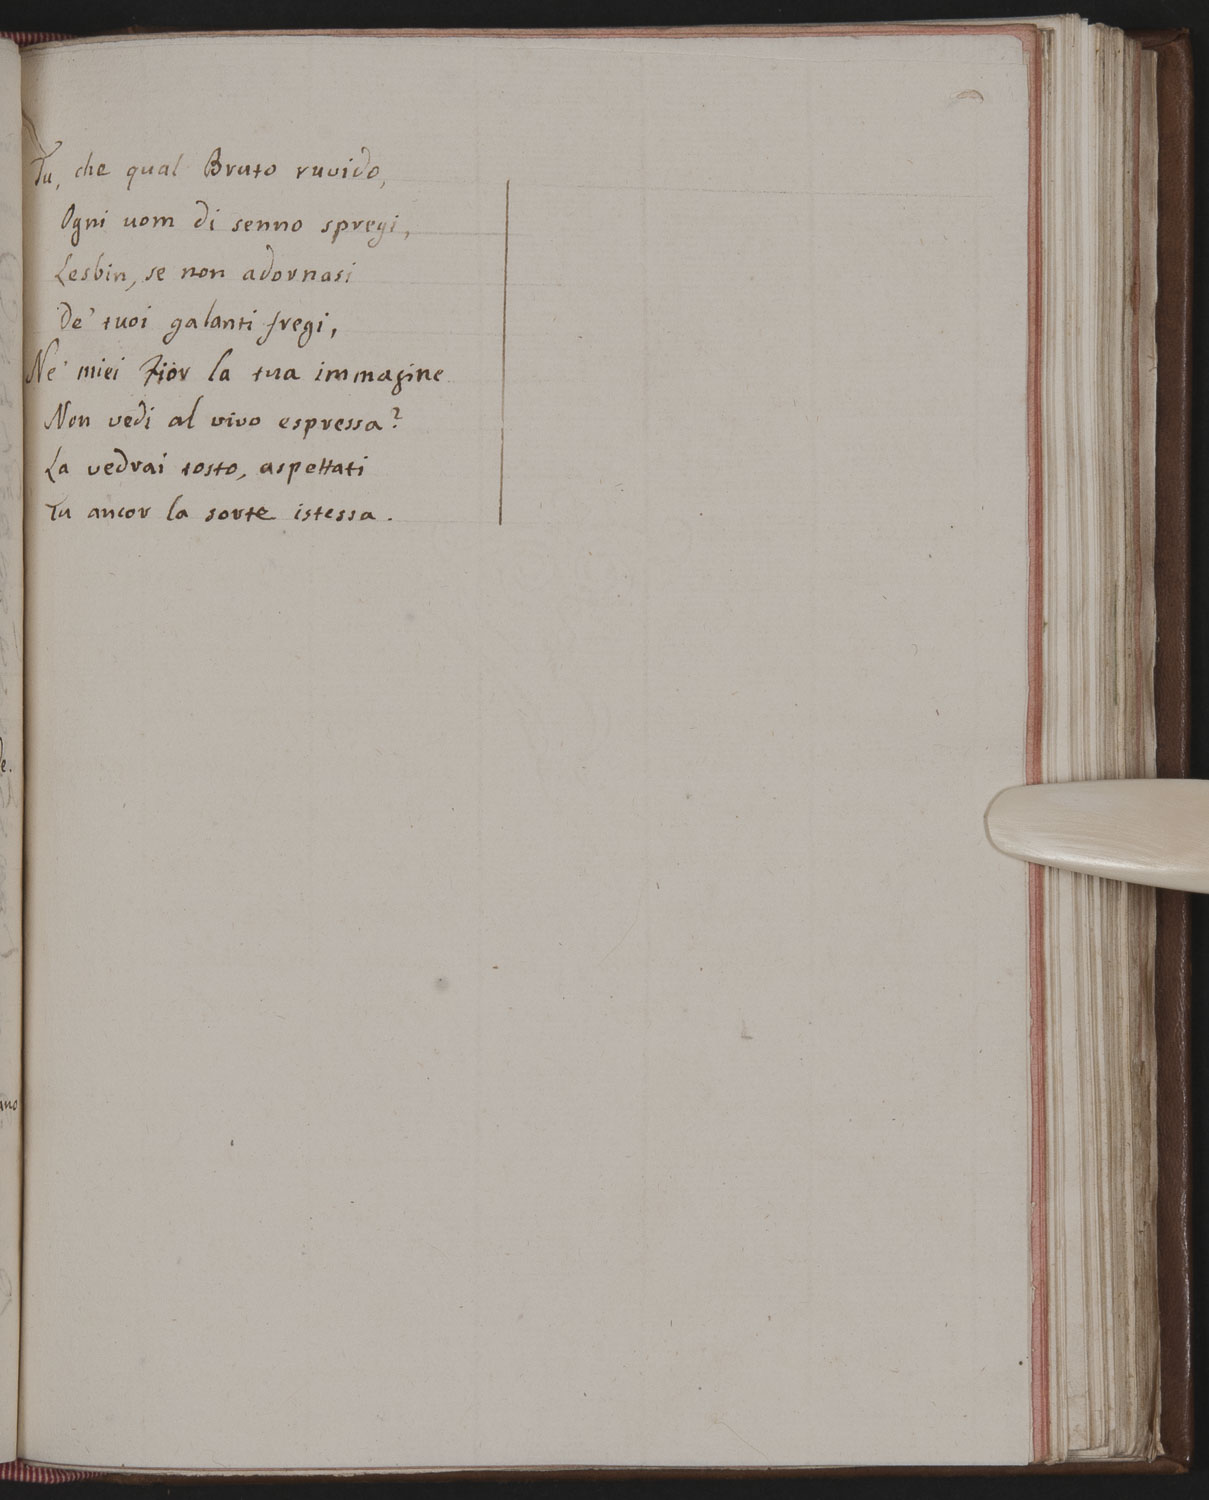 Tu, che qual Bruto ruvido,
Ogni uom di senno spregi,
Lesbin, se non adornasi
De' tuoi galanti fregi,
Ne' miei Fior la tua immagine
Non vedi al vivo espressa?
La vedrai tosto, aspettati
Tu ancor la sorte istessa.